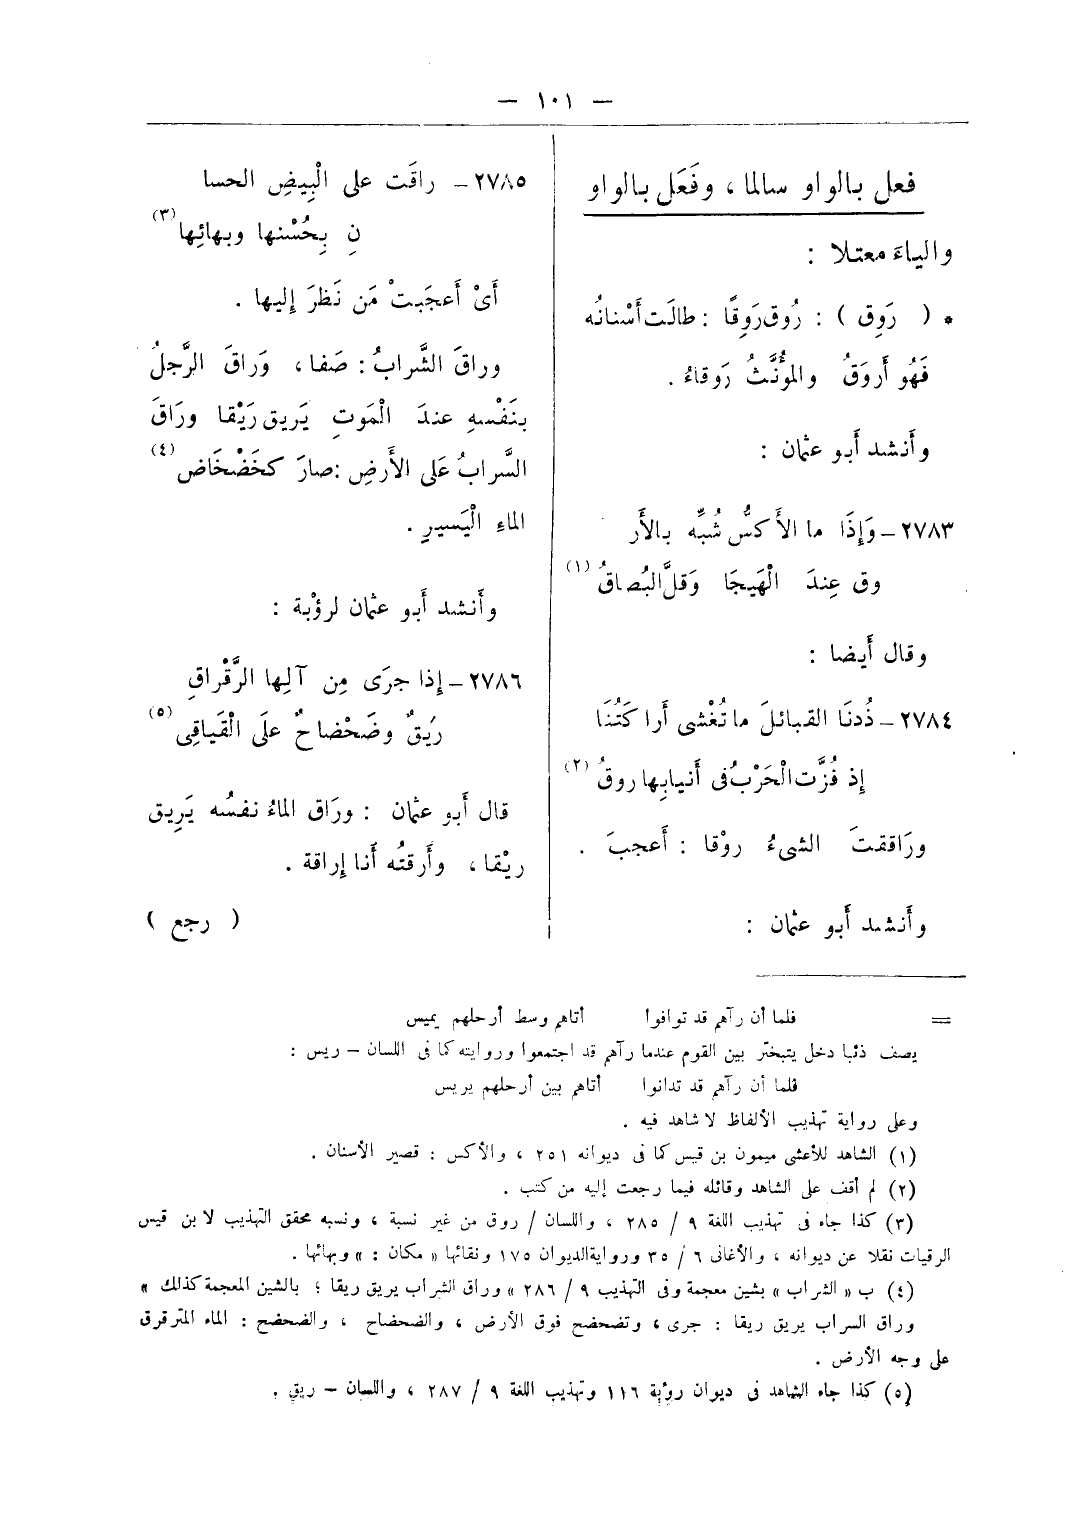 — ١٠١ —
فعل بالواو سالما ، وفَعَل بالواو
والياءَ معتلا :
* ( رَوِق ) : رُوِق رَوِقًا : طالَت أَسْنانُه
فَهُو أَروَقُ والمؤَنَّثُ رَوقاءُ .
وأَنشد أَبو عثمان :
٢٧٨٣ – وَإِذَا ما الأَكسُّ شُبِّه بالأَر
وق عِندَ الْهَيجَا وَقلَّ البُصاقُ (١)
وقال أَيضا :
٢٧٨٤ – ذُدنَا القبائلَ ما تُغْشى أَراكَتُنَا
إِذ فُزَّت الْحَرْبُ فى أَنيابِها روقُ (٢)
ورَاقتَ الشىءُ روْقا : أَعجبَ .
وأَنشد أَبو عثمان :
٢٧٨٥ – راقَت على الْبِيضِ الحسا
نِ بِحُسْنها وبهائِها (٣)
أَىْ أَعجَبتْ مَن نَظرَ إِليها .
وراقَ الشَّرابُ : صَفا ، وَراقَ الرَّجلُ
بنَفْسهِ عندَ الْمَوتِ يَريق رَيْقا ورَاقَ
السَّرابُ عَلى الأَرضِ : صارَ كخَضْخَاض (٤)
الماءِ الْيَسيرِ .
وأَنشد أَبو عثمان لرؤْبة :
٢٧٨٦ – إِذا جرَى مِن آلِها الرَّقْراقِ
رَيْقٌ وضَحْضاحٌ علَى الْقَياقِى (٥)
قال أَبو عثمان : ورَاق الماءُ نفسُه يَرِيق
ريْقا ، وأَرقتُه أَنا إِراقة .
( رجع )
= فلما أن رآهم قد توافوا أتاهم وسط أرحلهم يميس
يصف ذئبا دخل يتبختر بين القوم عندما رآهم قد اجتمعوا وروايته كما فى اللسان – ريس :
فلما أن رآهم قد تدانوا أتاهم بين أرحلهم يريس
وعلى رواية تهذيب الألفاظ لا شاهد فيه .
(١) الشاهد للأعشى ميمون بن قيس كما فى ديوانه ٢٥١ ، والأكس : قصير الأسنان .
(٢) لم أقف على الشاهد وقائله فيما رجعت إليه من كتب .
(٣) كذا جاء فى تهذيب اللغة ٩ / ٢٨٥ ، واللسان / روق من غير نسبة ، ونسبه محقق التهذيب لابن قيس
الرقيات نقلا عن ديوانه ، والأغانى ٦ / ٣٥ ورواية الديوان ١٧٥ ونقائها « مكان : » وبهائها .
(٤) ب « الشراب » بشين معجمة وفى التهذيب ٩ / ٢٨٦ » وراق الشراب يريق ريقا ؛ بالشين المعجمة كذلك »
وراق السراب يريق ريقا : جرى ، وتضحضح فوق الأرض ، والضحضاح ، والضحضح : الماء المترقرق
على وجه الأرض .
(٥) كذا جاء الشاهد فى ديوان رؤبة ١١٦ وتهذيب اللغة ٩ / ٢٨٧ ، واللسان – ريق .